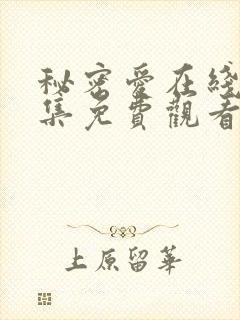 秘密愛在綫
集免費觀看
上原留華